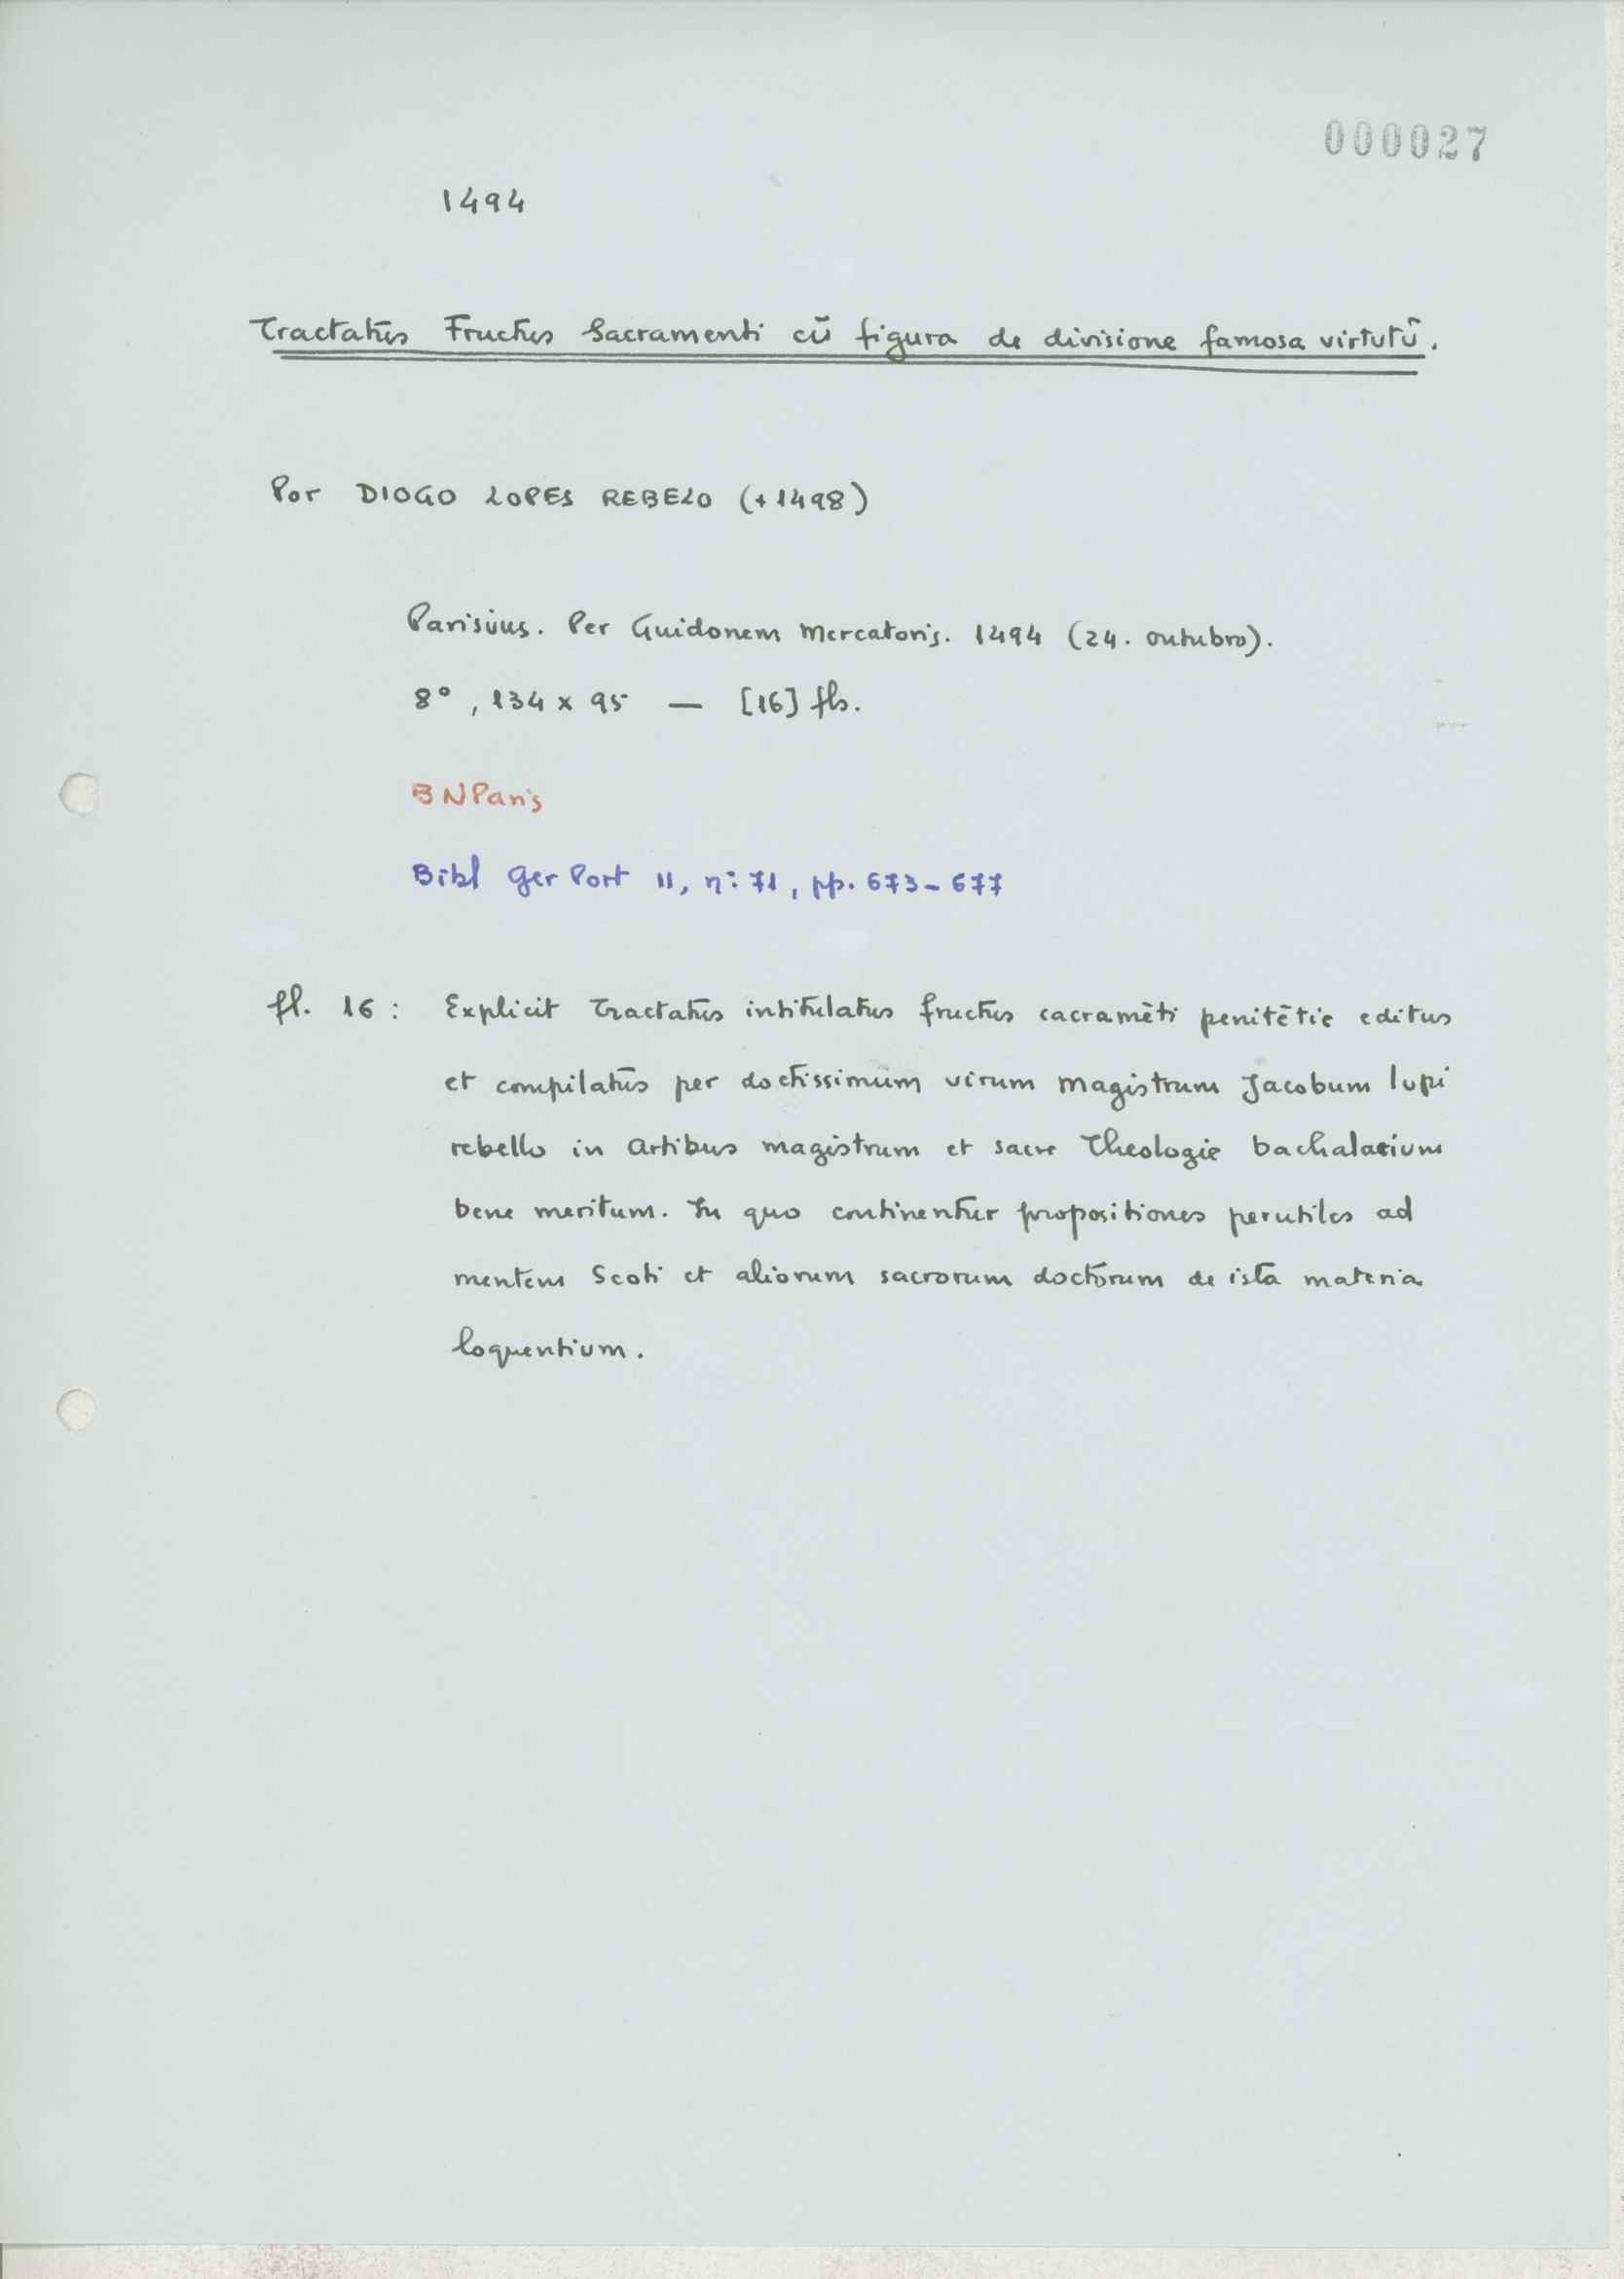 000027
1494
Tractatus Fructus Sacramenti cū figura de divisione famosa virtutū.
Por DIOGO LOPES REBELO (+1498)
Parisius. Per Guidonem Mercatoris. 1494 (24. outubro).
8º, 134 x 95 — [16] fls.
BNParis
Bibl Ger Port II, nº 71, pp. 673-677
fl. 16: Explicit Tractatus intitulatus fructus sacramēti penitētie editus
et compilatus per doctissimum virum magistrum Jacobum lupi
rebello in Artibus magistrum et sacre Theologie bachalarium
bene meritum. In quo continentur propositiones perutiles ad
mentem Scoti et aliorum sacrorum doctorum de ista materia
loquentium.